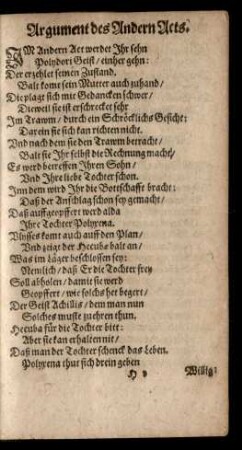 Argument des Andern Acts.
IM Andern Act werdet Ihr sehn
Polydori Geist / einher gehn:
Der erzehlet seinen Zustand,
Balt komt sein Mutter auch zuhand /
Die plagt sich mit Gedancken schwer /
Dieweil sie ist erschrecket sehr
Im Trawm / durch ein Schröcklichs Gesicht;
Darein sie sich kan richten nicht.
Vnd nach dem sie den Trawm betracht /
Balt sie Ihr selbst die Rechnung macht /
Es werd betreffen Ihren Sohn /
Vnd Ihre liebe Tochter schon.
Inn dem wird Ihr die Bottschafft bracht:
Daß der Anschlag schon sey gemacht /
Daß auffgeopffert werd alda
Ihre Tochter Polyxena.
Vlysses komt auch auff den Plan /
Vnd zeigt der Hecuba balt an /
Was im Läger beschlossen sey:
Nemlich / daß Er die Tochter frey
Soll abholen / damit sie werd
Geopffert / wie solchs het begert /
Der Geist Achillis / dem man nun
Solches muste zu ehren thun.
Hecuba für die Tochter bitt:
Aber sie kan erhalten nit /
Daß man der Tochter schenck das Leben.
Polyxena thut sich drein geben
Willig: